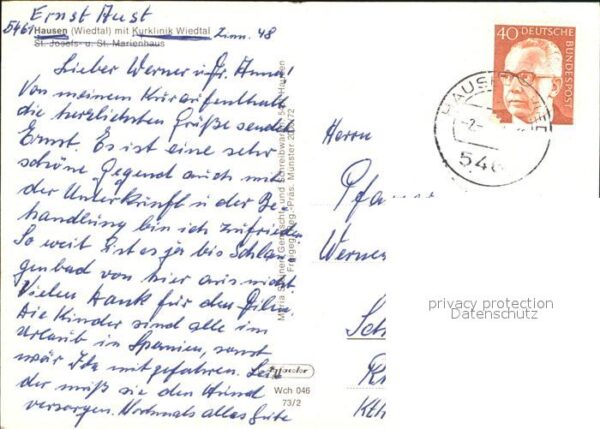 Ernst Aust
5461 Hausen (Wiedtal) mit Kurklinik Wiedtal
Zimm. 48
St. Josefs- u. St. Marienhaus
Lieber Werner u. Fr. Anna!
Von meinem Kuraufenthalt
die herzlichsten Grüße sendet
Ernst. Es ist eine sehr
schöne Gegend auch mit
der Unterkunft u der Be-
handlung bin ich zufrieden
So weit ist es ja bis Schlan-
genbad von hier aus nicht
Vielen Dank für den Film
Die Kinder sind alle im
Urlaub in Spanien, sonst
wär Ida mitgefahren. Lei-
der muß sie den Hund
versorgen. Nochmals alles Gute
Maria
Geschenke und Schreibwaren, 5461 Hausen
Freigeg. Reg.-Präs. Münster
Wch 046
73/2
40 DEUTSCHE BUNDESPOST
HAUSEN
546
Herrn
Werner
privacy protection
Datenschutz